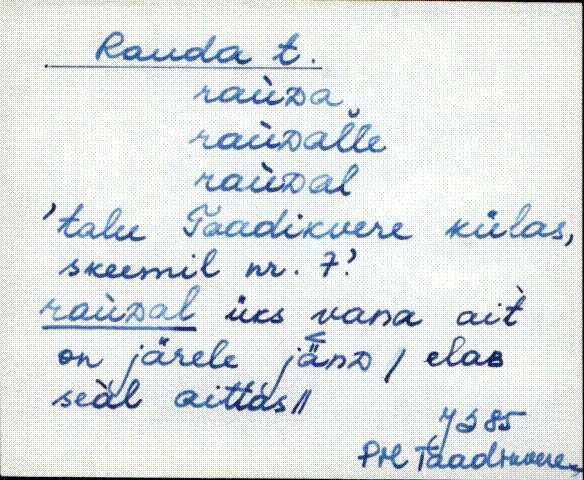 Rauda t.
raùᴅa
raùᴅal̆l̆e
raùᴅal
'talu Taadikvere külas,
skeemil nr. 7.'
raùᴅal üks vana ait̀
on järele jänᴅ / elaʙ
seàl aittas //
JS 85
PM Taadikvere